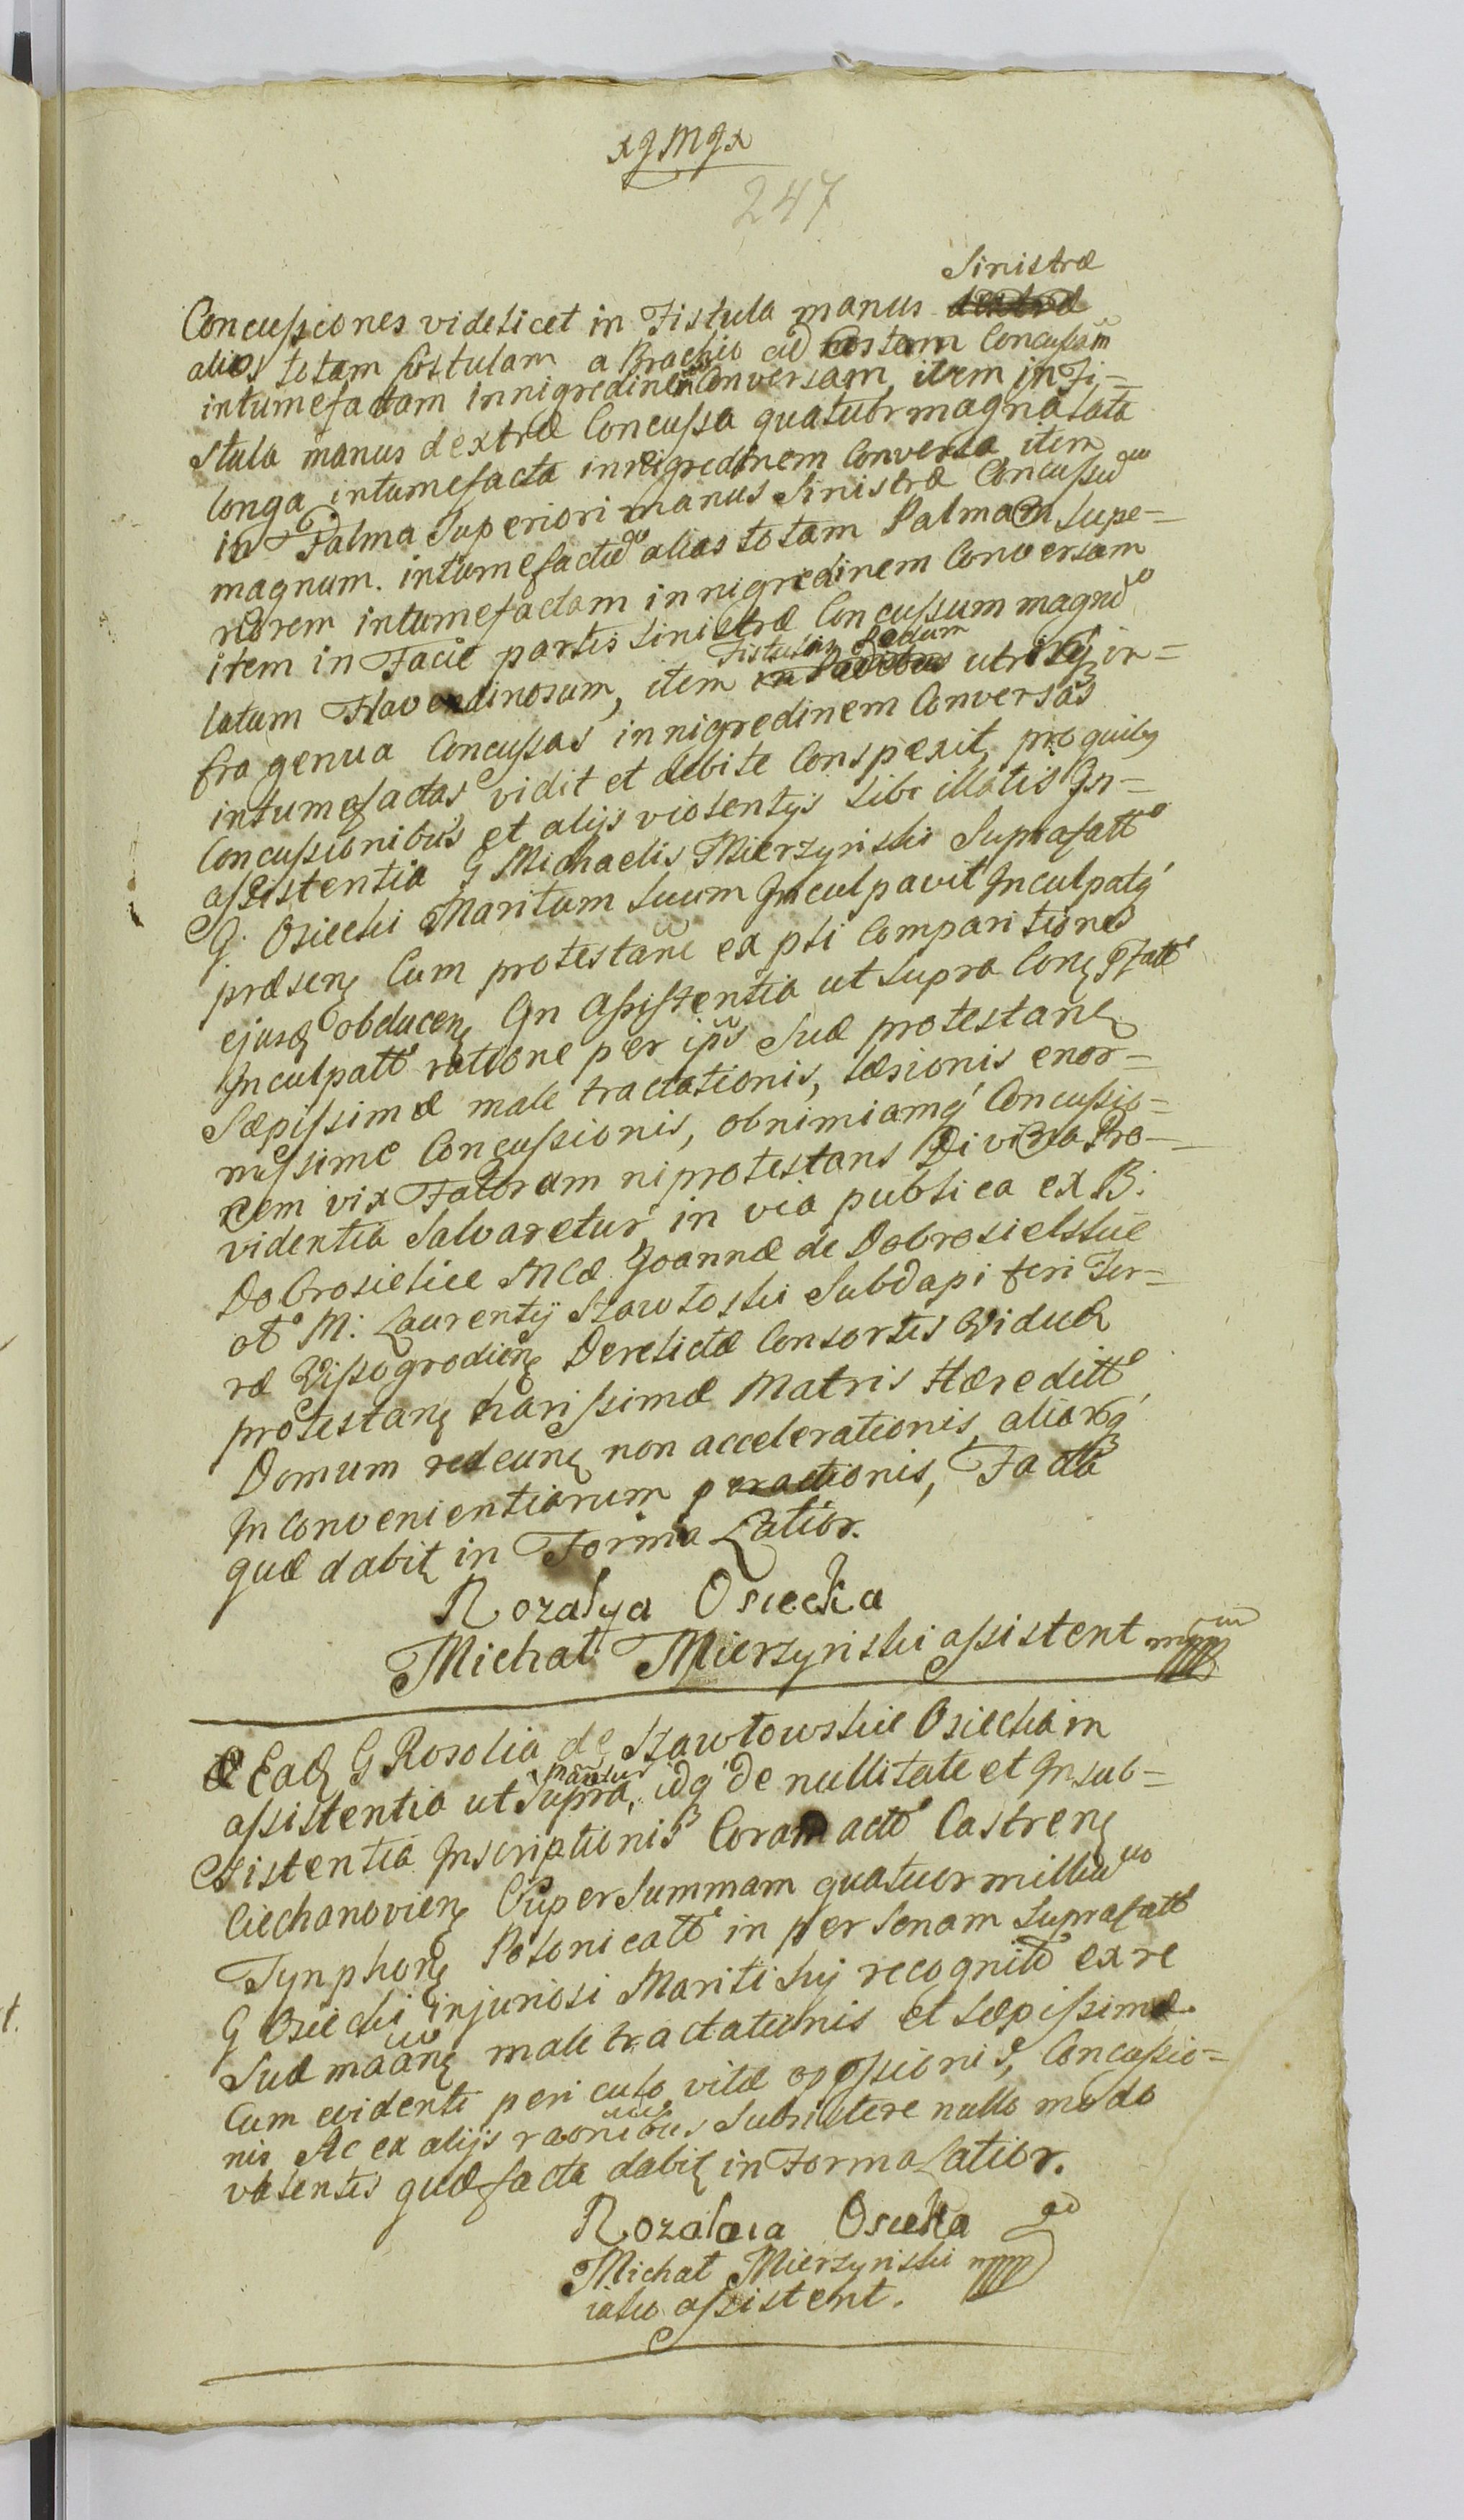 x J M J x
247
Sinistræ
Concussiones videlicet in Fistula manus
alias totam fistulam a Brachio ad Costam Concussam
intumefactam in nigredinem Conversam, item in Fi=
stula manus dextræ Concussa quatuor magna lata
longa intumefacta in nigredinem Conversa item
in Palma Superiori manus Sinistræ Concussu
magnum. intumefactu alias totam Palmam Supe=
riorem intumefactam in nigredinem Conversam
item in Facie partis sinistræ Concussum magnu
Fistulas Pedum
latum Flavedinosum, item in Pedibus utrisq in=
fra genua Concussas in nigredinem Conversas
intumefactas vidit et debite Conspexit, pro quibq
Concussionibus et alijs violentijs sibi illatis In=
assistentia G Michaelis Mierzynski Suprafatt
G. Osiecki Maritum Suum Inculpavit Inculpatq
præsenę Cum protestane ex pti Comparitione
ejusdę obducenę In assistentia ut supra Conę Pfatt
Inculpatt ratione per ips Suæ protestanę
Sæpissimæ male tractationis, læsionis enor=
missime Concussionis, ob nimiamq Concussio=
nem vix Fatoram ni protestans Divina Pro=
videntia Salvaretur in via publica ex B:
Dobrosielice Mcæ Joannæ de Dobrosielskie
ot M: Laurentij Szawłoski Subdapiferi Ter=
ræ Vissogrodienę Derelictæ Consortis Viduæ
protestanę charissimæ Matris Hæreditt
Domum redeunę non accelerationis aliorq
Inconvenientiarum peractionis, Facta
quæ dabit in Forma Latior.
Rozalya Osiecka
Michał Mierzynski assistent mpp
Eadę G Rosolia de Szawłowskie Osiecka in
manens
assistentia ut supra, idq de nullitate et Insub=
sistentia Inscriptionis Coram actt Castrenę
Ciechanovienę Super Summam quatuor milliu
Tynphonę Polonicatt in personam Suprafatt
G Osiecki injuriosi Mariti sui recognitt ex re
Suæ maanę male tractationis et sæpissimæ
Cum evidenti periculo vitæ oppssionis, Concussio=
nis Ac ex alijs raonibus Subsistere nullo modo
valentis quæ facta dabit in Forma Latior.
Rozalia Osiecka
Michał Mierzynski mpp
iako assistent.